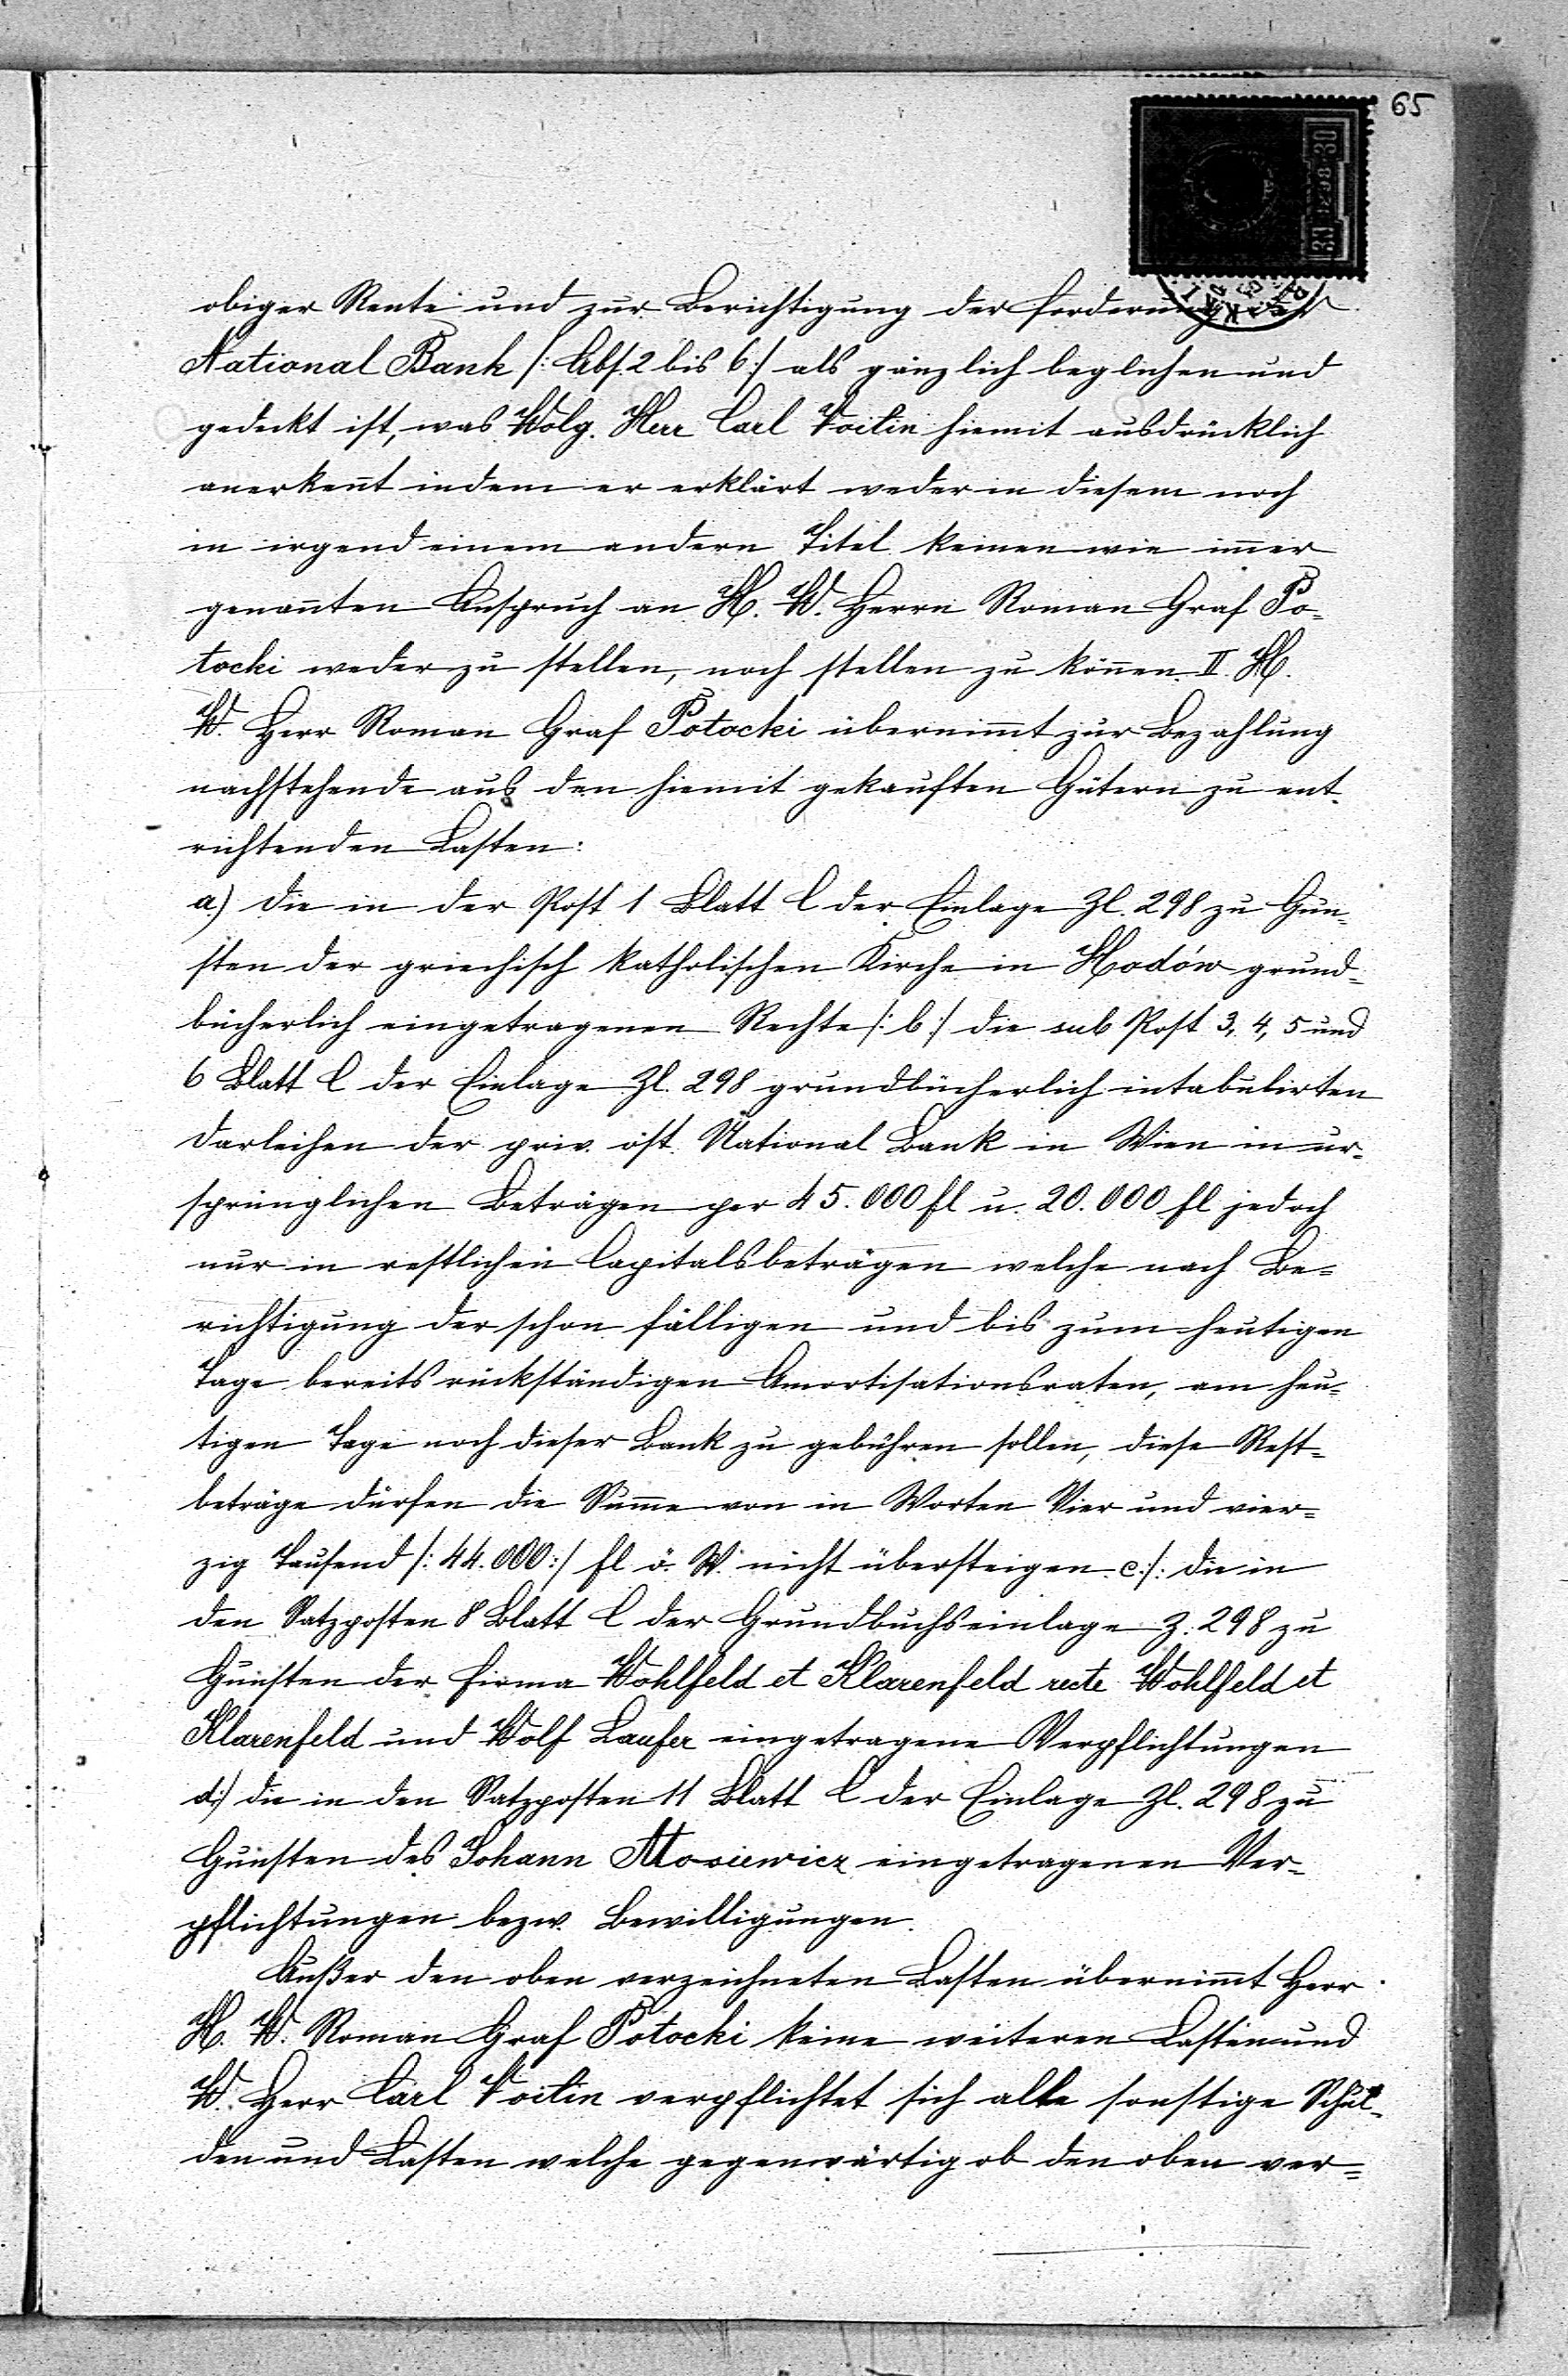 65
obiger Rente und zur Berichtigung der Forderung der
National Bank /: Abs. 2 bis 6 :/ als gänzlich beglichen und
gedeckt ist, was Wolg. Herr Carl Voitin hiemit ausdrücklich
anerkent indem er erklärt weder in diesem noch
in irgend einem andern Titel keinen wie imer
genanten Anspruch an H. W. Herrn Roman Graf Po-
tocki weder zu stellen, noch stellen zu könen. II. H.
W. Herr Roman Graf Potocki übernimt zur Bezahlung
nachstehende aus den hiemit gekauften Gütern zu ent-
richtenden Lasten:
a.) die in der Post 1 Blatt C der Einlage Zl. 298 zu Gun-
sten der griechisch katholischen Kirche in Hodów grund-
bücherlich eingetragenen Rechte /: b :/ die sub Post 3, 4, 5 und
6 Blatt C der Einlage Zl. 298 grundbücherlich intabulirten
Darleihen der priv. öst. National Bank in Wien in ur-
sprünglichen Beträgen per 45.000 fl u. 20.000 fl jedoch
nur in restlichen Capitalsbeträgen welche nach Be-
richtigung der schon fälligen und bis zum heutigen
Tage bereits rückständigen Amortisationsraten, am heu-
tigen Tage noch dieser Bank zu gebühren sollen, diese Rest-
beträge dürfen die Sume von in Worten Vier und vier-
zig Tausend /: 44.000 :/ fl ö. W. nicht übersteigen c :/: die in
den Satzposten 8 Blatt C der Grundbuchseinlage Z. 298 zu
Gunsten der Firma Wohlfeld et Klarenfeld recte Wohlfeld et
Klarenfeld und Wolf Laufer eingetragene Verpflichtungen
d:/ die in den Satzposten 11 Blatt C der Einlage Zl. 298 zu
Gunsten des Johann Mosiewicz eingetragenen Ver-
pflichtungen bezw. Bewilligungen.
Außer den oben verzeichneten Lasten übernimt Herr
H. W. Roman Graf Potocki keine weiteren Lasten und
W. Herr Carl Voitin verpflichtet sich alle sonstige Schul-
den und Lasten welche gegenwärtig ob den oben ver-